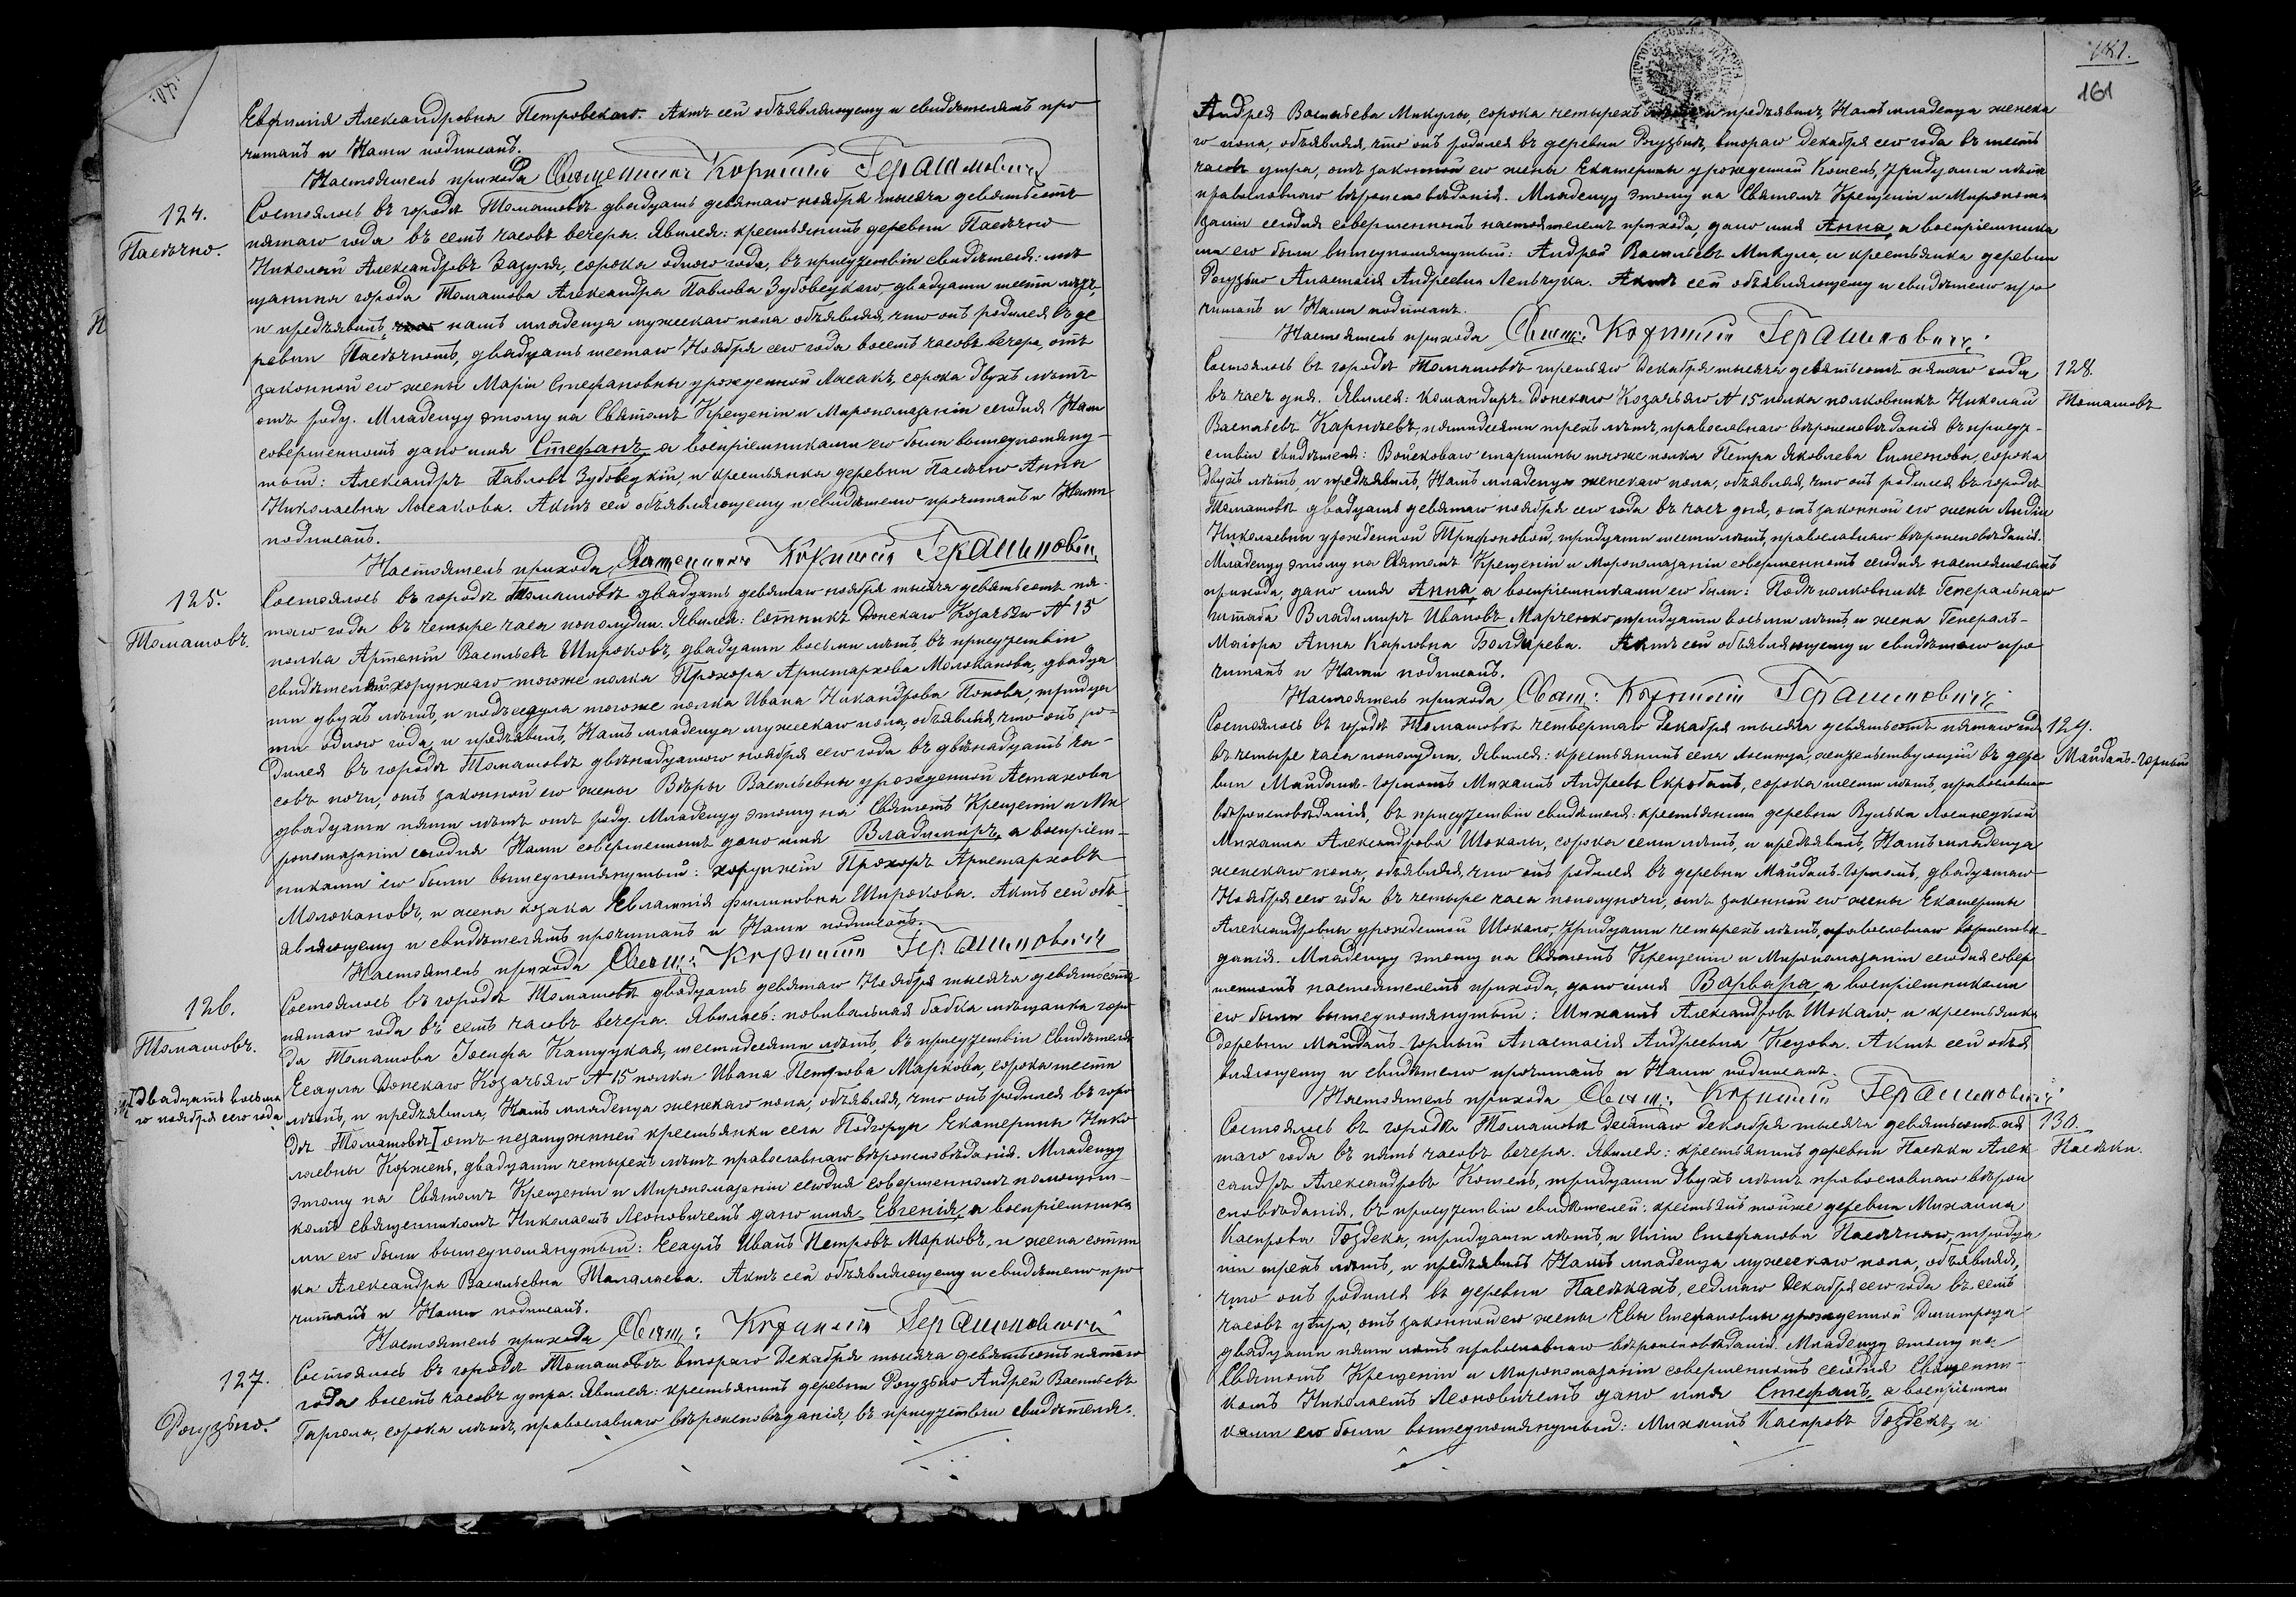 Евфимія Александровна Петровскаго. Актъ сей объявляющему и свидѣтелямъ про
читанъ и Нами подписанъ.
Настоятель прихода Священникъ Корнилій Герасимовичъ
124.
Пасѣчно.
Состоялось въ городѣ Томашовѣ двадцать девятаго ноября тысяча девятьсотъ
пятаго года въ семь часовъ вечера. Явился: крестьянинъ деревни Пасѣчно
Николай Александровъ Зазуля, сорока одного года, въ присутствіи свидѣтеля: мѣ
щанина города Томашова Александра Павлова Зубовецкаго, двадцати шести лѣтъ,
и предъявилъ намъ младенца мужескаго пола объявляя, что онъ родился въ де
ревни Пасѣчномъ, двадцать шестаго Ноября сего года восемь часовъ вечера, отъ
законной его жены Маріи Стефановны урожденной Лисакъ, сорока двухъ лѣтъ
отъ роду. Младенцу этому на Святомъ Крещеніи и Миропомазаніи сегодня Нами
совершенномъ дано имя Стефанъ, а воспріемниками его были вышеупомяну-
тый: Александръ Павловъ Зубовецкій, и крестьянка деревни Пасѣчно Анна
Николаевна Лисакова. Актъ сей объявляющему и свидѣтелю прочитанъ и Нами
подписанъ.
Настоятель прихода Священникъ Корнилій Герасимовичъ
125.
Томашовъ.
Состоялось въ городѣ Томашовѣ двадцать девятаго ноября тысяча девятьсотъ пя-
таго года въ четыре часа пополудни. Явился: Сотникъ Донскаго Козачьяго № 15
полка Арсеній Васильевъ Широковъ, двадцати восьми лѣтъ, въ присутствіи
свидѣтелей: хорунжаго тогоже полка Прохора Аристархова Молоканова, двадца
ти двухъ лѣтъ, и подъесаула тогоже полка Ивана Никандрова Попова, тридца
ти одного года, и предъявилъ Намъ младенца мужескаго пола, объявляя, что онъ ро-
дился въ городѣ Томашовѣ двѣнадцатаго ноября сего года въ двѣнадцать ча-
совъ ночи, отъ законной его жены Вѣры Васильевны урожденной Астахова
двадцати пяти лѣтъ отъ роду. Младенцу этому на Святомъ Крещеніи и Ми
ропомазаніи сегодня Нами совершенномъ дано имя Владимиръ, а воспріем-
никами его были вышеупомянутый: хорунжій Прохоръ Аристарховъ
Молокановъ, и жена козака Евлампія Филиповна Широкова. Актъ сей объ-
являющему и свидѣтелямъ прочитанъ и Нами подписанъ.
Настоятель прихода Свящ: Корнилій Герасимовичъ
126.
Томашовъ.
Двадцать восьма
го ноября сего года
Состоялось въ городѣ Томашовѣ двадцать девятаго Ноября тысяча девятьсотъ
пятаго года въ семь часовъ вечера. Явилась: повивальная бабка мѣщанка горо
да Томашова Іосифа Катуцкая, шестидесяти лѣтъ, въ присутствіи Свидѣтеля
Есаула Донскаго Козачьяго № 15 полка Ивана Петрова Маркова, сорока шести
лѣтъ, и предъявила, Намъ младенца женскаго пола, объявляя, что онъ родился въ горо
дѣ Томашовѣ отъ незамужней крестьянки села Подгорци Екатерины Нико
лаевны Коржень, двадцати четырехъ лѣтъ православнаго вѣроисповѣданія. Младенцу
этому на Святомъ Крещеніи и Миропомазаніи сегодня совершенномъ помощни-
комъ священникомъ Николаемъ Леоновичемъ дано имя Евгенія, а воспріемника
ми его были вышеупомянутый: Есаулъ Иванъ Петровъ Марковъ, и жена сотни
ка Александра Васильевна Талалаева. Актъ сей объявляющему и свидѣтелю про
читанъ и Нами подписанъ.
Настоятель прихода Свящ: Корнилій Герасимовичъ
127.
Рогузьно.
Состоялось въ городѣ Томашовѣ втораго Декабря тысяча девятьсотъ пятаго
года восемь часовъ утра. Явился: крестьянинъ деревни Рогузьно Андрей Васильевъ
Гаргола, сорока лѣтъ, православнаго вѣроисповѣданія, въ присутствіи свидѣтеля:
181.
161
Андрея Васильева Микулы, сорока четырехъ и предъявилъ Намъ младенца женска
го пола, объявляя, что онъ родился въ деревни Рогузьнѣ, втораго Декабря сего года въ шесть
часовъ утра, отъ законной его жены Екатерины урожденной Котель, тридцати лѣтъ
православнаго вѣроисповѣданія. Младенцу этому на Святомъ Крещеніи и Миропома
заніи сегодня совершенномъ настоятелемъ прихода, дано имя Анна, а воспріемника
ми его были вышеупомянутый: Андрей Васильевъ Микула, и крестьянка деревни
Рогузьно Анастасія Андреевна Леньчука. Актъ сей объявляющему и свидѣтелю про
читанъ и Нами подписанъ.
Настоятель прихода Свящ: Корнилій Герасимовичъ
128.
Томашовъ
Состоялось въ городѣ Томашовѣ третьяго Декабря тысяча девятьсотъ пятаго года
въ часъ дня. Явился: командиръ Донскаго Козачьяго № 15 полка полковникъ Николай
Васильевъ Карпѣевъ, пятидесяти трехъ лѣтъ, православнаго вѣроисповѣданія въ присут-
ствіи свидѣтеля: Войсковаго старшины тогоже полка Петра Яковлева Симонова, сорока
двухъ лѣтъ, и предъявилъ, Намъ младенца женскаго пола, объявляя, что онъ родился въ городѣ
Томашовѣ двадцать девятаго ноября сего года въ часъ дня, отъ законной его жены Лидіи
Николаевны урожденной Трифоновой, тридцати шести лѣтъ, православнаго вѣроисповѣданія.
Младенцу этому на Святомъ Крещеніи и Миропомазаніи совершенномъ сегодня настоятелемъ
прихода, дано имя Анна, а воспріемниками его были: Подъ полковникъ Генеральнаго
штаба Владимиръ Ивановъ Марченко, тридцати восьми лѣтъ, и жена Генералъ-
Маіора Анна Карловна Болдырева. Актъ сей объявляющему и свидѣтелю про
читанъ и Нами подписанъ.
Настоятель прихода Свящ: Корнилій Герасимовичъ
129.
Майданъ-Горный
Состоялось въ городѣ Томашовѣ четвертаго Декабря тысяча девятьсотъ пятаго года
въ четыре часа пополудни. Явился: крестьянинъ села Лосинца, жительствующій въ дере
вни Майданѣ-Горномъ Михаилъ Андреевъ Скробанъ, сорока шести лѣтъ, православнаго
вѣроисповѣданія, въ присутствіи свидѣтеля: крестьянина деревни Вулька Лосинецкой
Михаила Александрова Шокалы, сорока семи лѣтъ, и предъявилъ, Намъ младенца
женскаго пола, объявляя, что онъ родился въ деревни Майданъ-Горномъ, двадцатаго
Ноября сего года въ четыре часа пополуночи, отъ законной его жены Екатерины
Александровны урожденной Шокало, тридцати четырехъ лѣтъ, православнаго вѣроисповѣ-
данія. Младенцу этому на Святомъ Крещеніи и Миропомазаніи сегодня совер
шенномъ настоятелемъ прихода, дано имя Варвара, а воспріемниками
его были вышеупомянутый: Михаилъ Александровъ Шокало, и крестьянка
деревни Майданъ-Горный Анастасія Андреевна Кецова. Актъ сей объя
вляющему и свидѣтелю прочитанъ и Нами подписанъ.
Настоятель прихода Свящ: Корнилій Герасимовичъ
130.
Пасѣки.
Состоялось въ городѣ Томашовѣ десятаго Декабря тысяча девятьсотъ пя
таго года въ пять часовъ вечера. Явился: крестьянинъ деревни Пасѣки Алек
сандръ Александровъ Котель, тридцати двухъ лѣтъ православнаго вѣрои
сповѣданія, въ присутствіи свидѣтелей: крестьянъ тойже деревни Михаила
Каспрова Гоздека, тридцати лѣтъ, и Иліи Стефанова Пасѣчнаго, тридца
ти трехъ лѣтъ, и предъявилъ Намъ младенца мужескаго пола, объявляя,
что онъ родился въ деревни Пасѣкахъ, седмаго Декабря сего года въ семь
часовъ утра, отъ законной его жены Евы Стефановны урожденной Дмитроца
двадцати пяти лѣтъ православнаго вѣроисповѣданія. Младенцу этому на
Святомъ Крещеніи и Миропомазаніи совершенномъ сегодня Священни-
комъ Николаемъ Леоновичемъ дано имя Стефанъ, а воспріемни
ками его были вышеупомянутый: Михаилъ Каспровъ Гоздекъ, и